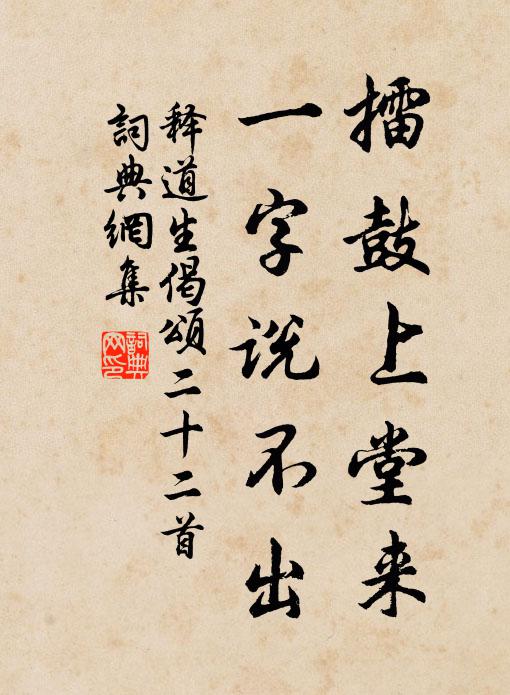 擂鼓上堂来
一字说不出
释道生偈颂二十二首
詞典網集
詞典
网印